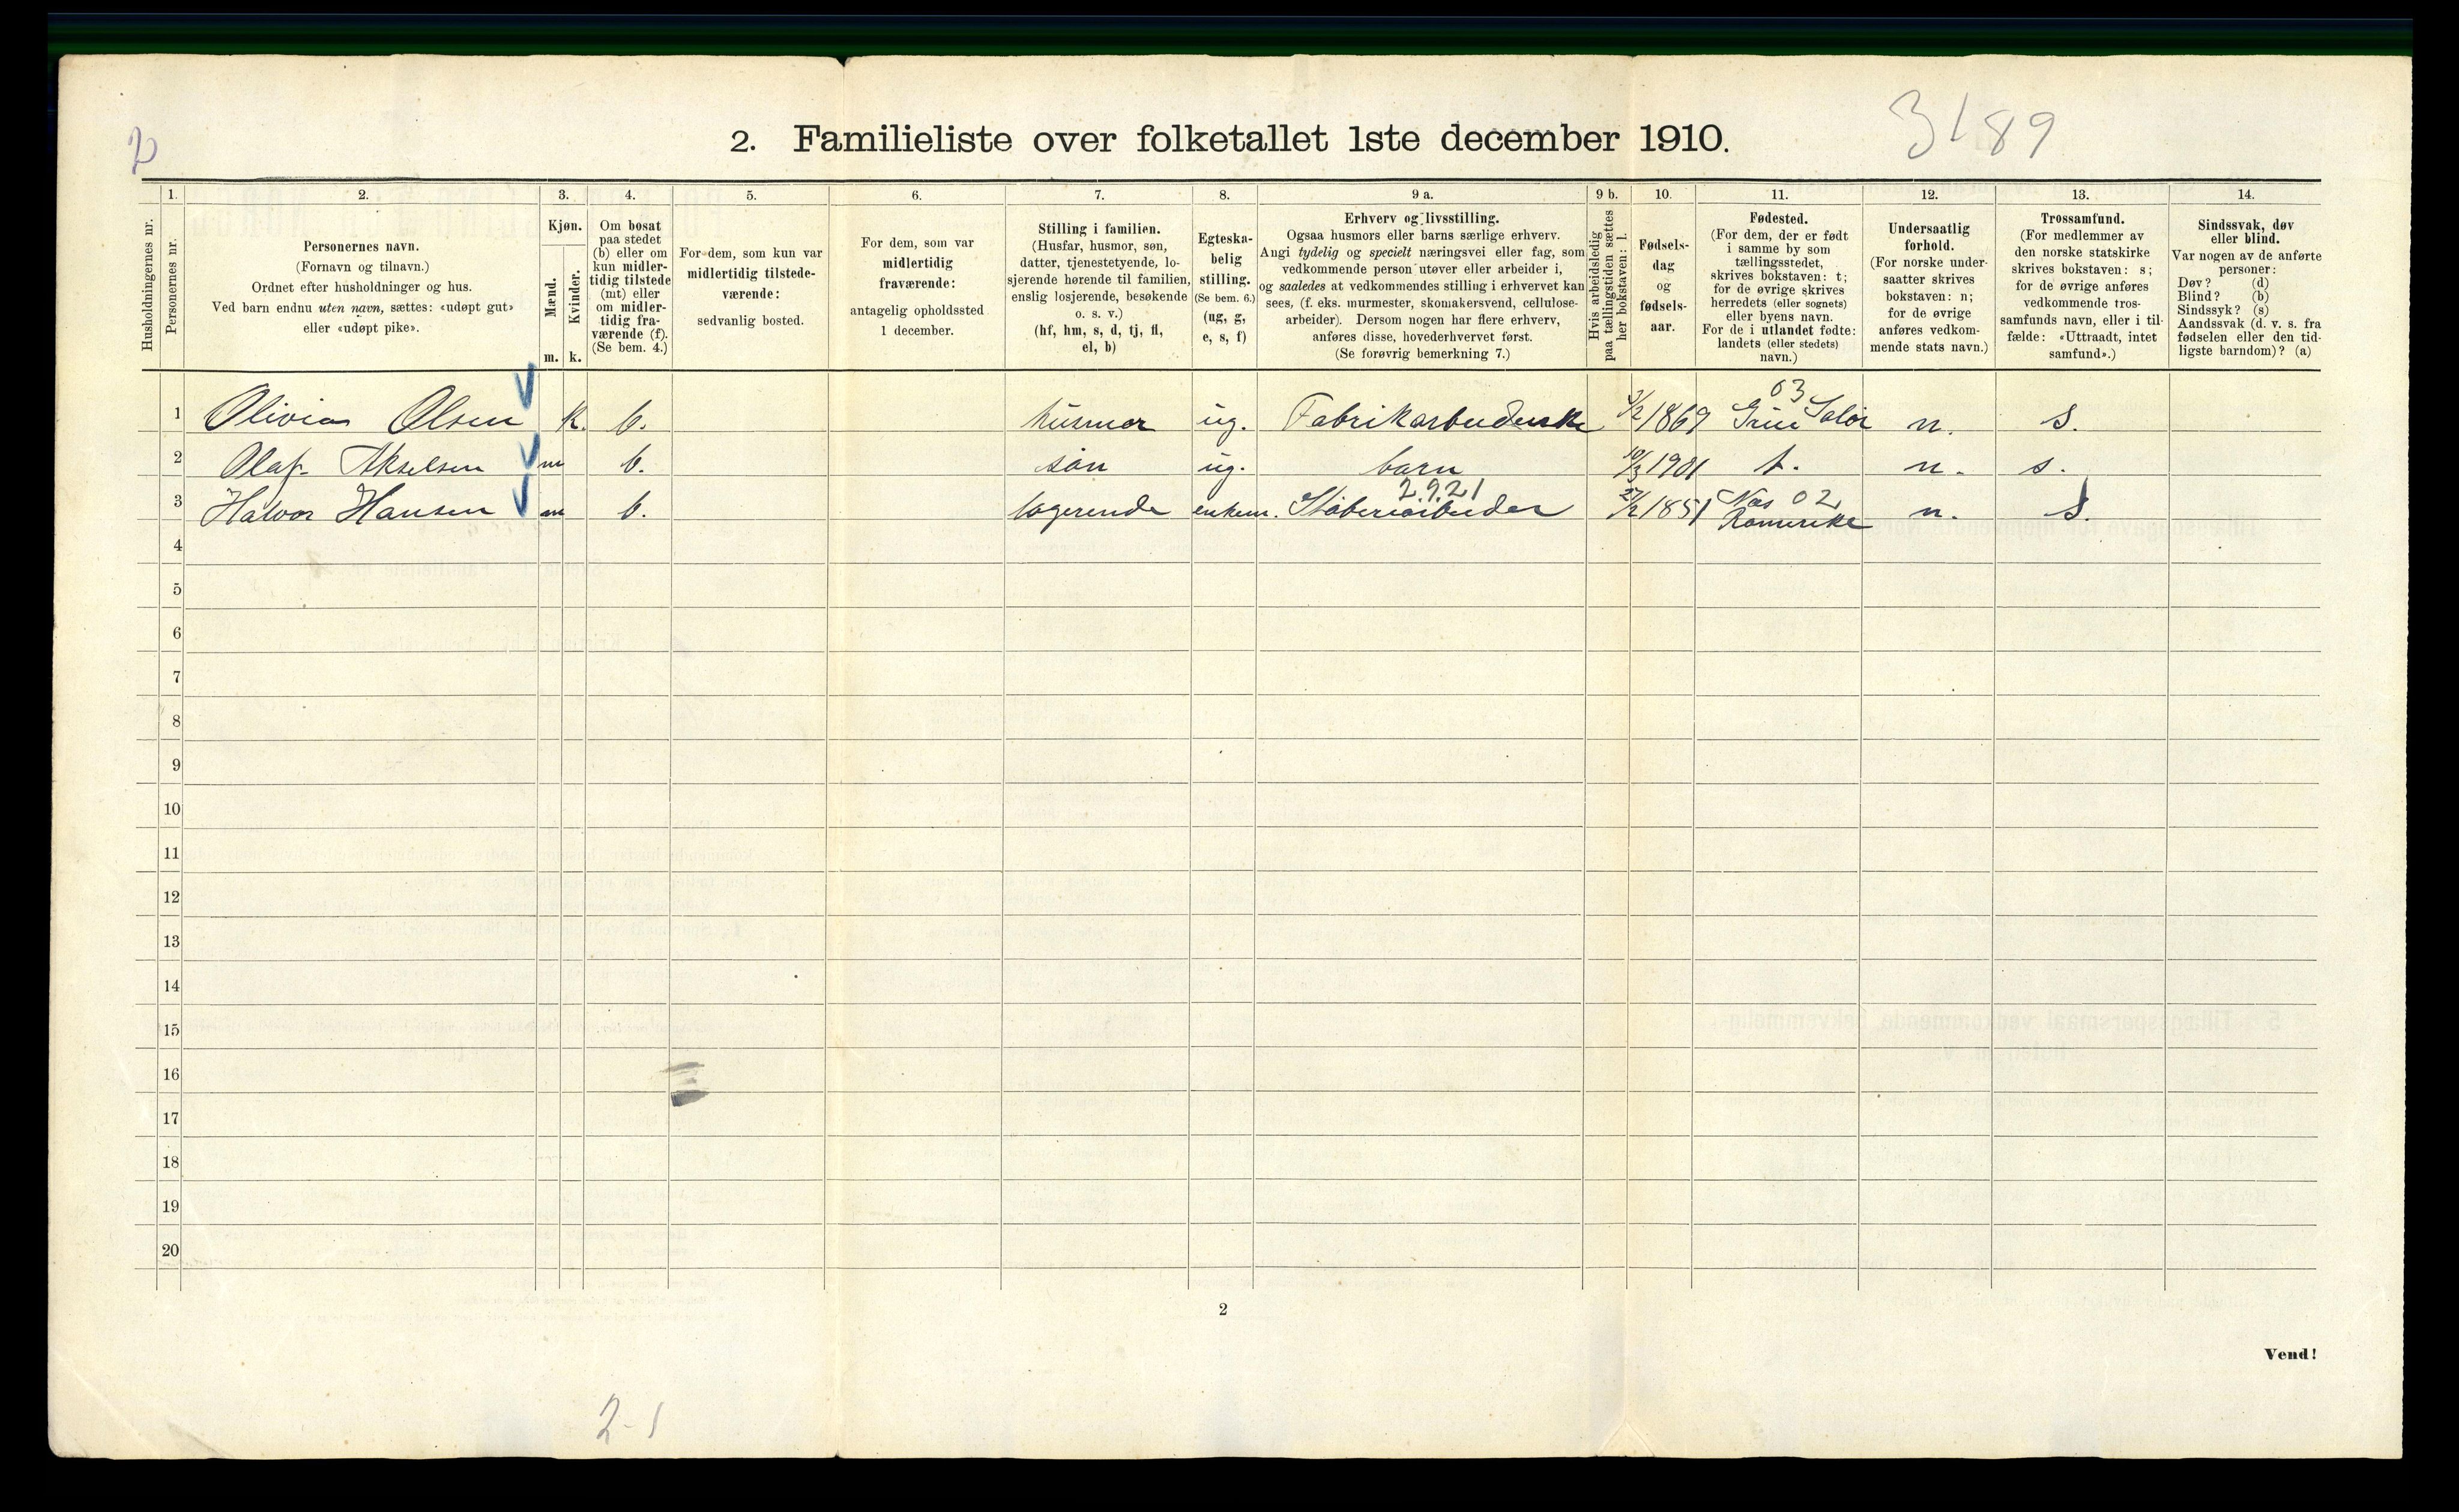 2. Familieliste over folketallet 1ste december 1910.
3189
2
1. 2. 3. 4. 5. 6. 7. 8. 9 a. 9 b. 10. 11. 12. 13. 14.
Husholdningernes nr.
Personernes nr.
Personernes navn.
(Fornavn og tilnavn.)
Ordnet efter husholdninger og hus.
Ved barn endnu uten navn, sættes: «udøpt gut»
eller «udøpt pike».
Kjøn.
Mænd.
Kvinder.
m. k.
Om bosat
paa stedet
(b) eller om
kun midler-
tidig tilstede
(mt) eller
om midler-
tidig fra-
værende (f).
(Se bem. 4.)
For dem, som kun var
midlertidig tilstede-
værende:
sedvanlig bosted.
For dem, som var
midlertidig
fraværende:
antagelig opholdssted
1 december.
Stilling i familien.
(Husfar, husmor, søn,
datter, tjenestetyende, lo-
sjerende hørende til familien,
enslig losjerende, besøkende
o. s. v.)
(hf, hm, s, d, tj, fl,
el, b)
Egteska-
belig
stilling.
(Se bem. 6.)
(ug, g,
e, s, f)
Erhverv og livsstilling.
Ogsaa husmors eller barns særlige erhverv.
Angi tydelig og specielt næringsvei eller fag, som
vedkommende person utøver eller arbeider i,
og saaledes at vedkommendes stilling i erhvervet kan
sees, (f. eks. murmester, skomakersvend, cellulose-
arbeider). Dersom nogen har flere erhverv,
anføres disse, hovederhvervet først.
(Se forøvrig bemerkning 7.)
Hvis arbeidsledig
paa tællingstiden sættes
her bokstaven: l.
Fødsels-
dag
og
fødsels-
aar.
Fødested.
(For dem, der er født
i samme by som
tællingsstedet,
skrives bokstaven: t;
for de øvrige skrives
herredets (eller sognets)
eller byens navn.
For de i utlandet fødte:
landets (eller stedets)
navn.)
Undersaatlig
forhold.
(For norske under-
saatter skrives
bokstaven: n;
for de øvrige
anføres vedkom-
mende stats navn.)
Trossamfund.
(For medlemmer av
den norske statskirke
skrives bokstaven: s;
for de øvrige anføres
vedkommende tros-
samfunds navn, eller i til-
fælde: «Uttraadt, intet
samfund».)
Sindssvak, døv
eller blind.
Var nogen av de anførte
personer:
Døv? (d)
Blind? (b)
Sindssyk? (s)
Aandssvak (d. v. s. fra
fødselen eller den tid-
ligste barndom)? (a)
03
1 Olivia Olsen k. b. husmor ug. Fabrikarbeiderske 1869 Grue Solør n. s.
2 Olaf Akselsen m b. søn ug. barn 10/3 1901 t. n. s.
2.9.21
3 Halvor Hansen m b. logerende enkem. Støberiarbeider 27/2 1851 Næs 02 n. s.
Romerike
4
5
6
7
8
9
10
11
12
13
14
15
16
17
18
19
20
2
Vend!
2-1